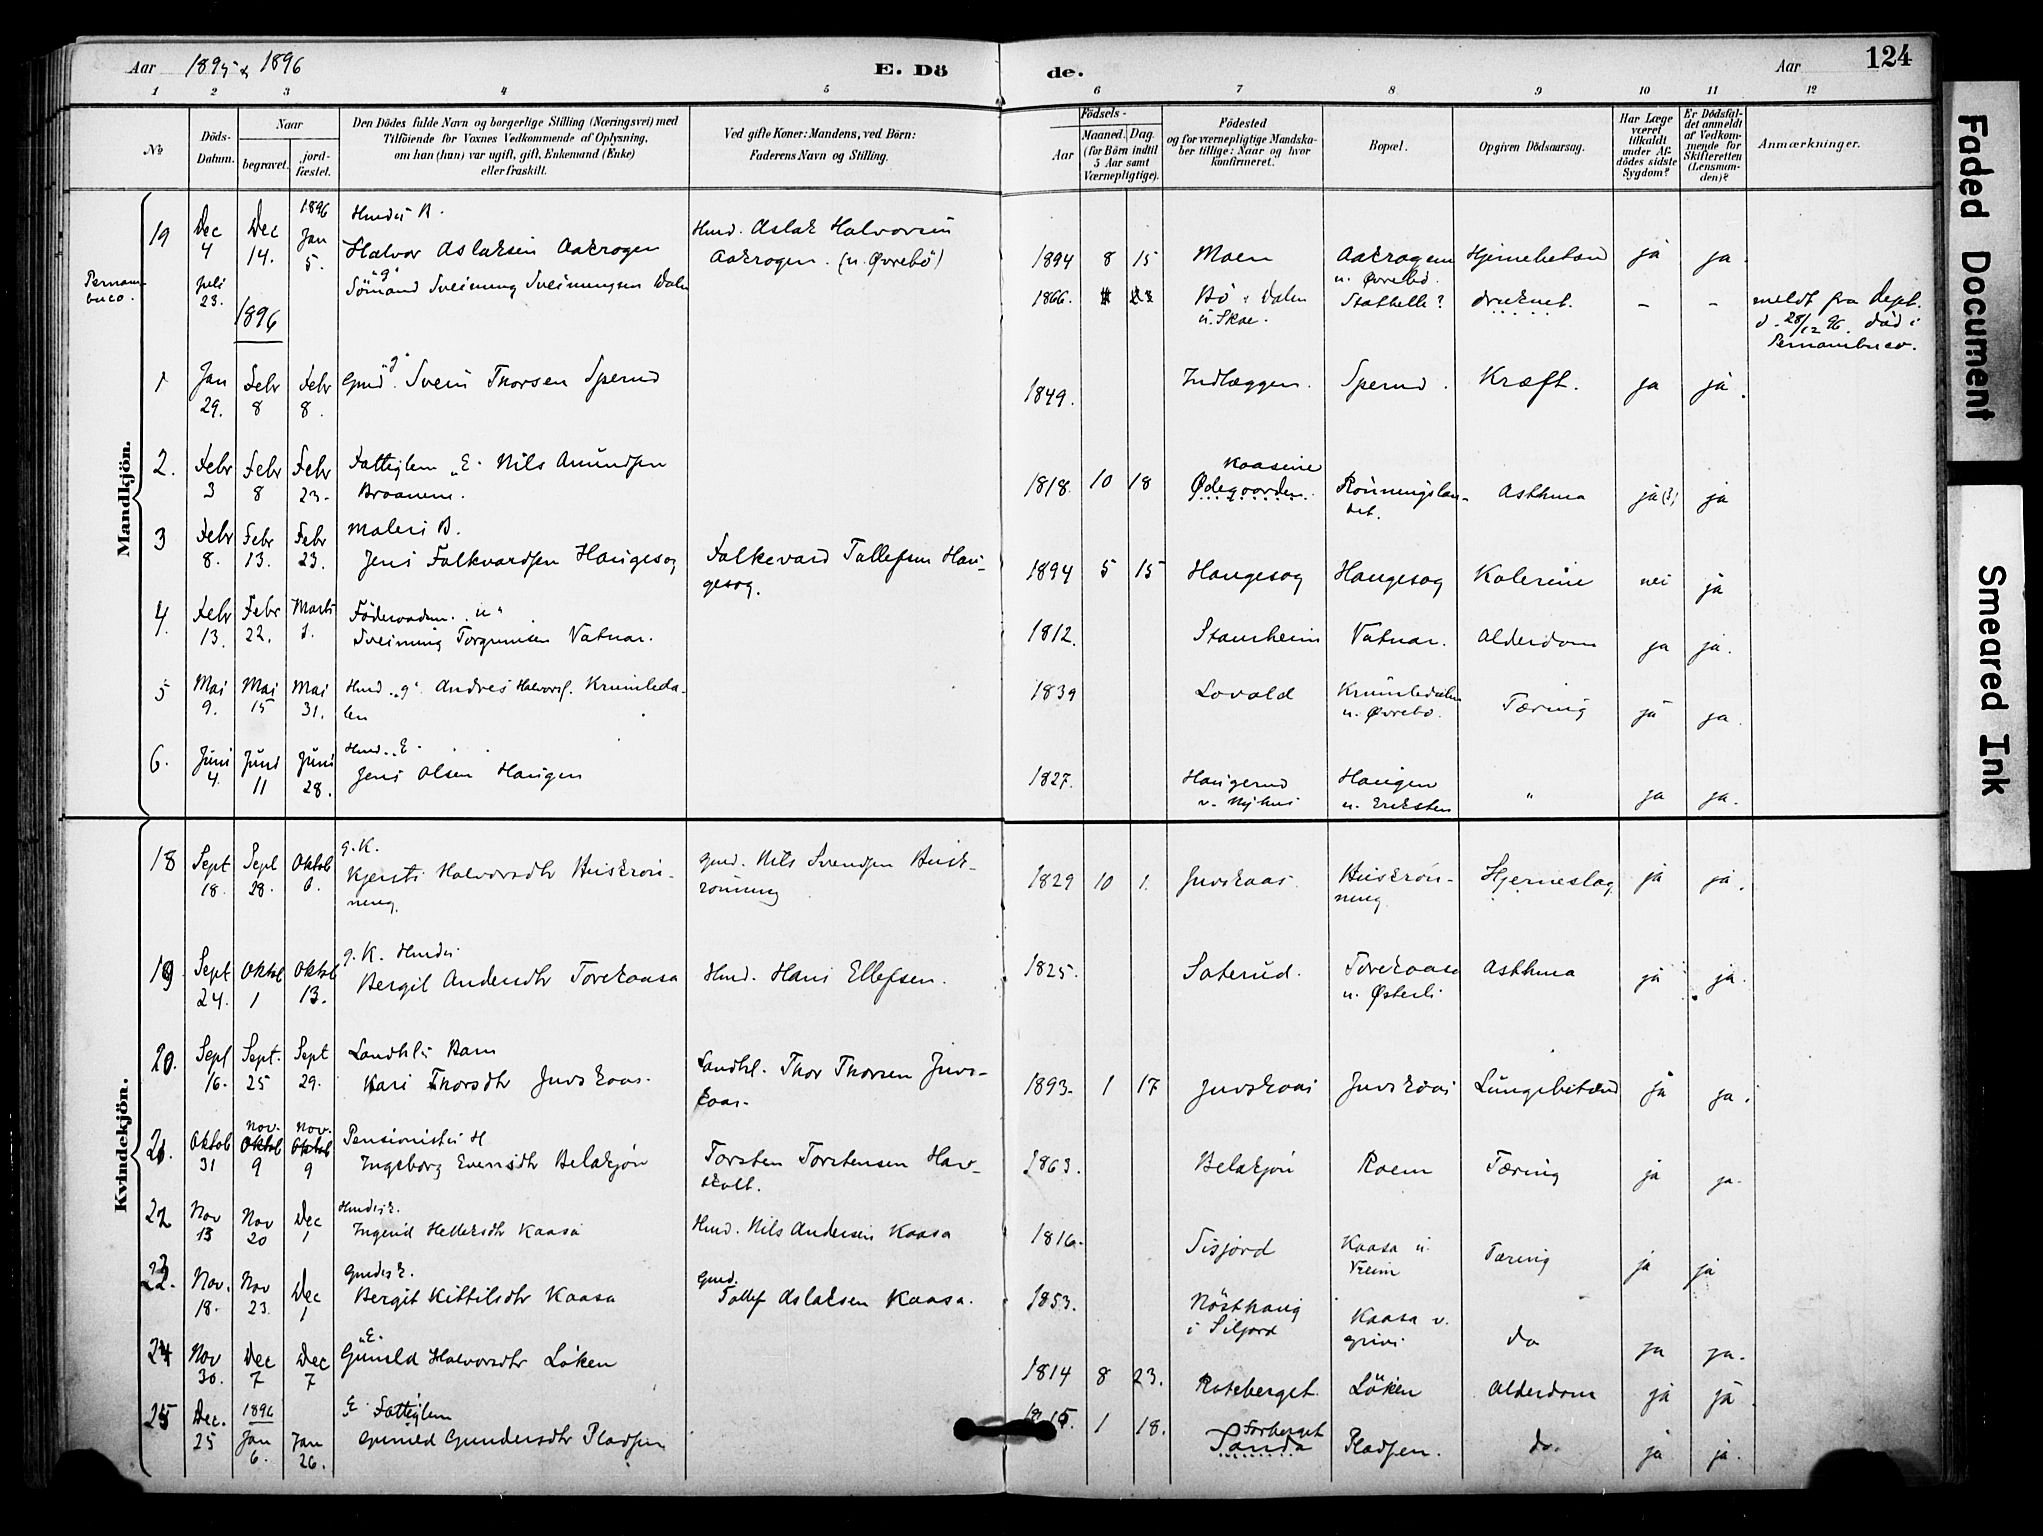 Aar 1895 & 1896
E. Dö de.
Aar 124
1 2 3 4 5 6 7 8 9 10 11 12
No
Döds-Datum.
Naar
begravet.
jord-fæstet.
Den Dödes fulde Navn og borgerlige Stilling (Næringsvei) med
Tilföiende for Voxnes Vedkommende af Oplysning,
om han (hun) var ugift, gift, Enkemand (Enke)
eller fraskilt.
Ved gifte Koner: Mandens, ved Börn:
Faderens Navn og Stilling.
Födsels-
Aar
Maaned. Dag.
(for Börn indtil
5 Aar samt
Værnepligtige).
Födested
og for værnepligtige Mandska-
ber tillige: Naar og hvor
konfirmeret.
Bopæl.
Opgiven Dödsaarsag.
Har Læge
været
tilkaldt
under Af-
dödes sidste
Sygdom?
Er Dödsfal-
det anmeldt
af Vedkom-
mende for
Skifteretten
(Lensman-
den)?
Anmærkninger.
Mandkjön.
19 Dec 4 Dec 14. 1896 Jan 5. Halvor Aslaksen Aakrogen
Hmd. Aslak Halvorsen
Aakrogen. (u. Øvrebö)
1894 8 15 Moen Aakrogen u. Øvrebö. Hjernebetænd ja ja
Pernambuco.
Juli 23. Sömand "g" Sveinung Sveinungsen Dalen
1866. Bö i Dalen u. Skoe. Stathelle? druknet. - - meldt fra Dept.
d. 28/12 96. död i
Pernambuco.
1896
1 Jan 29. Febr 8 Febr 8. Gmd "g". Svein Thorsen Sperud 1849. Indlæggen. Sperud. Kræft. ja ja.
2. Febr 3 Febr 8 Febr 23. Fattiglem "E. Nils Amundsen
Braanene.
1818. 10 18 Kaasene Ødegaarden. Rönningslandet. Asthma ja (?) ja
3 Febr 8. Febr 13. Febr 23. Maleri B.
Jens Falkvardsen Haugesag Falkevard Tallefsen Hau-
gesag.
1894 5 15 Haugesag Haugesag Kolerine nei ja
4. Febr 13. Febr 22. Marts 1. Föderaadm. "u"
Sveinung Torgrimsen Vatnar. 1812. Stansheim Vatnar. Alderdom ja ja.
5 Mai 9. Mai 15 Mai 31. Hmd "g". Andres Halvors. Krumleda-
len 1839 Lovald Krumledalen u. Øvrebö. Tæring ja ja.
6. Juni 4. Juni 11 Juni 28. Hmd. "E.
Jens Olsen Haugen 1827. Haugerud v. Nyhus Haugen u. Eriksten " ja ja.
Kvindekjön.
18 Sept 18. Sept 28. Oktob 6. g. K.
Kjersti Halvorsdtr Huskrön-
ning. Gmd. Nils Svendsen Husk-
rönning 1829 10 1. Juvskaas. Huskrön-
ning Hjerneslag ja ja.
19. Sept 24. Oktob 1 Oktob 13. g. K. Hmdes
Bergit Andersdtr Torekaasa Hmd. Hans Ellefsen. 1825. Saterud. Torekaasa u. Østerli Asthma ja ja.
20. Sept 16. Sept. 25 Sept 29. Landhls Barn
Kari Thorsdtr Juvskaas. Landhl. Thor Thorsen Juvs-
kaas. 1893. 1 17 Juvskaas Juvskaas Lungebetænd ja ja.
21. Oktob 31 Nov. 9 Nov. 9 Pensionistes H
Ingeborg Evensdtr Belaksjön Torsten Torstensen Hav-
skolt. 1863. Belaksjön Roem Tæring ja ja.
22 Nov 13 Nov 20 Dec 1 Hmdes E.
Ingerid Helleksdtr Kaasa Hmd. Nils Andersen Kaasa 1816. Sisjord Kaasa u. Vreim Tæring ja ja
23. Nov. 18. Nov 23. Dec 1 Gmdes E.
Bergit Kittilsdtr Kaasa Gmd.
Tallef Aslaksen Kaasa. 1853. Nösthaug i Siljord Kaasa v. do ja ja.
24 Nov 30. Dec 7 Dec 7 "E.
Gunild Halvorsdtr Löken 1814 8 23. Roteberget. Löken Alderdom ja ja.
25 Dec. 25 1896 Jan 6. Jan 26. E. Fattiglem
Gunild Gundersdtr Pladsen 1815. 1 18. Sanda Pladsen. do. ja ja.
Faded Document
Smeared Ink